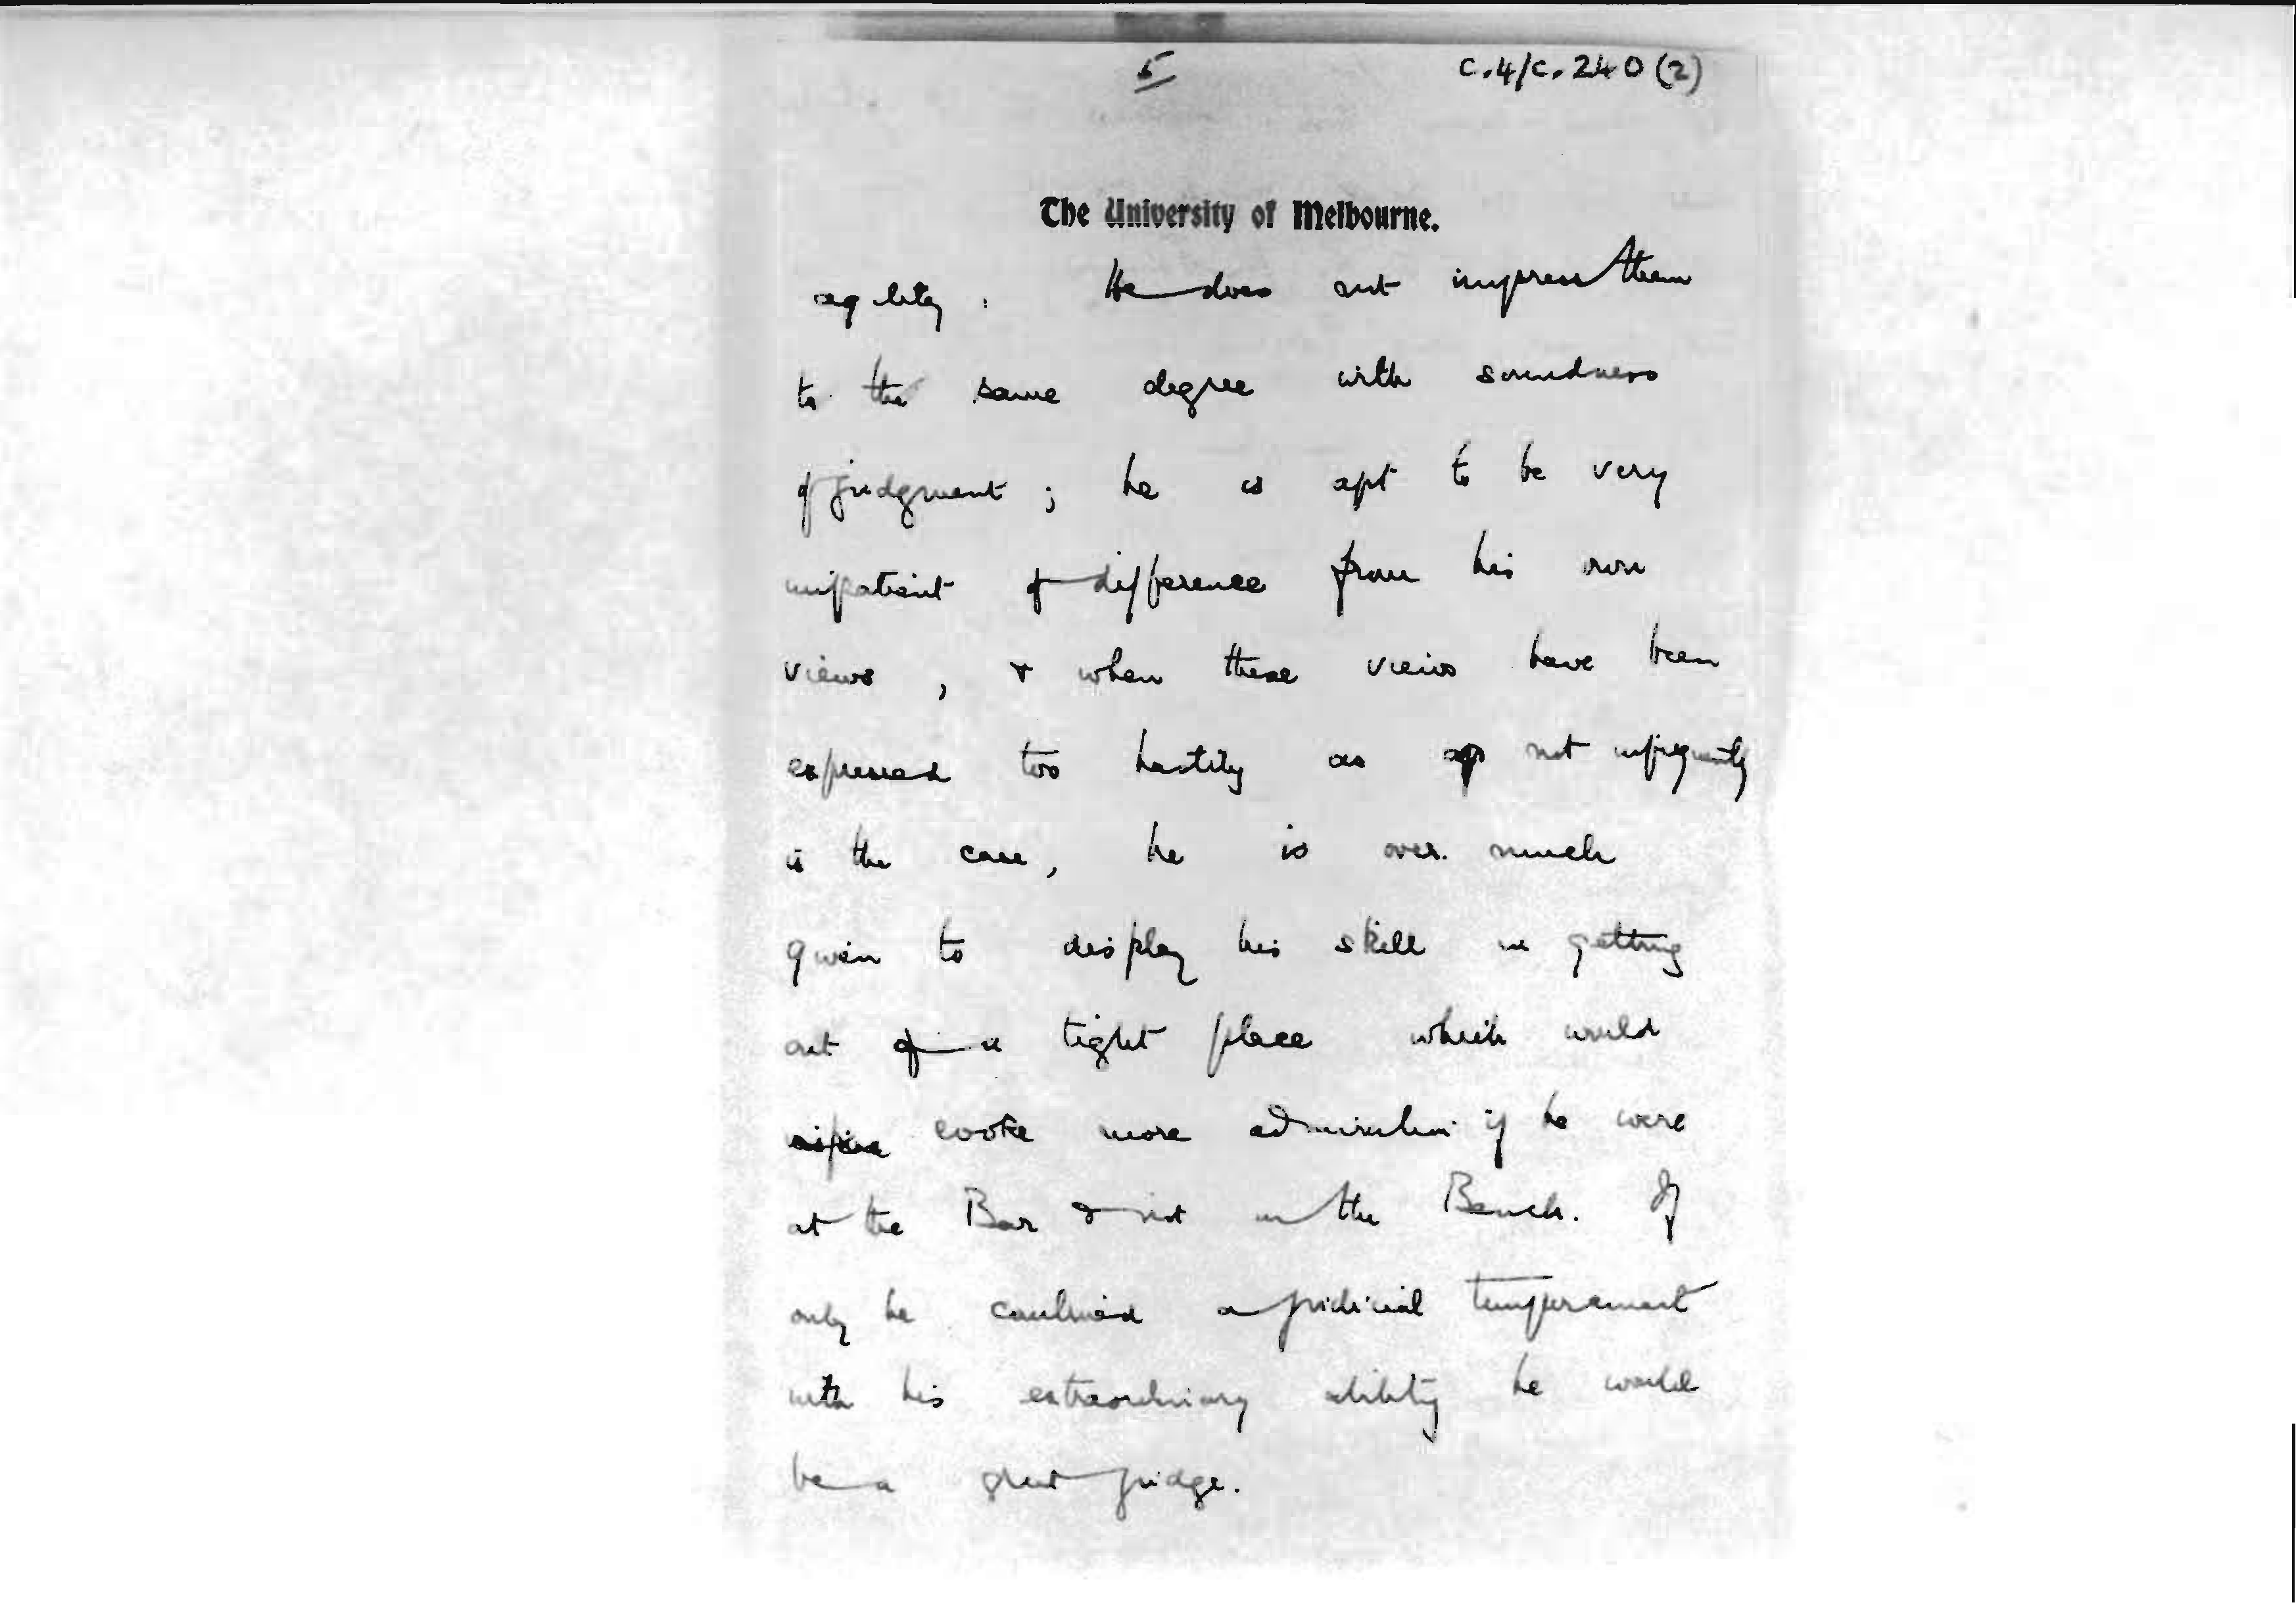 5
C.4/C.240 (2)
The University of Melbourne.
agility. He does not impress them
to the same degree with soundness
of judgment; he is apt to be very
impatient of difference from his own
views, & when these views have been
expressed too hastily as not infrequently
is the case, he is over much
given to display his skill in getting
out of a tight place which would
evoke more admiration if he were
at the Bar & not on the Bench. If
only he combined a judicial temperament
with his extraordinary ability he would
be a great judge.